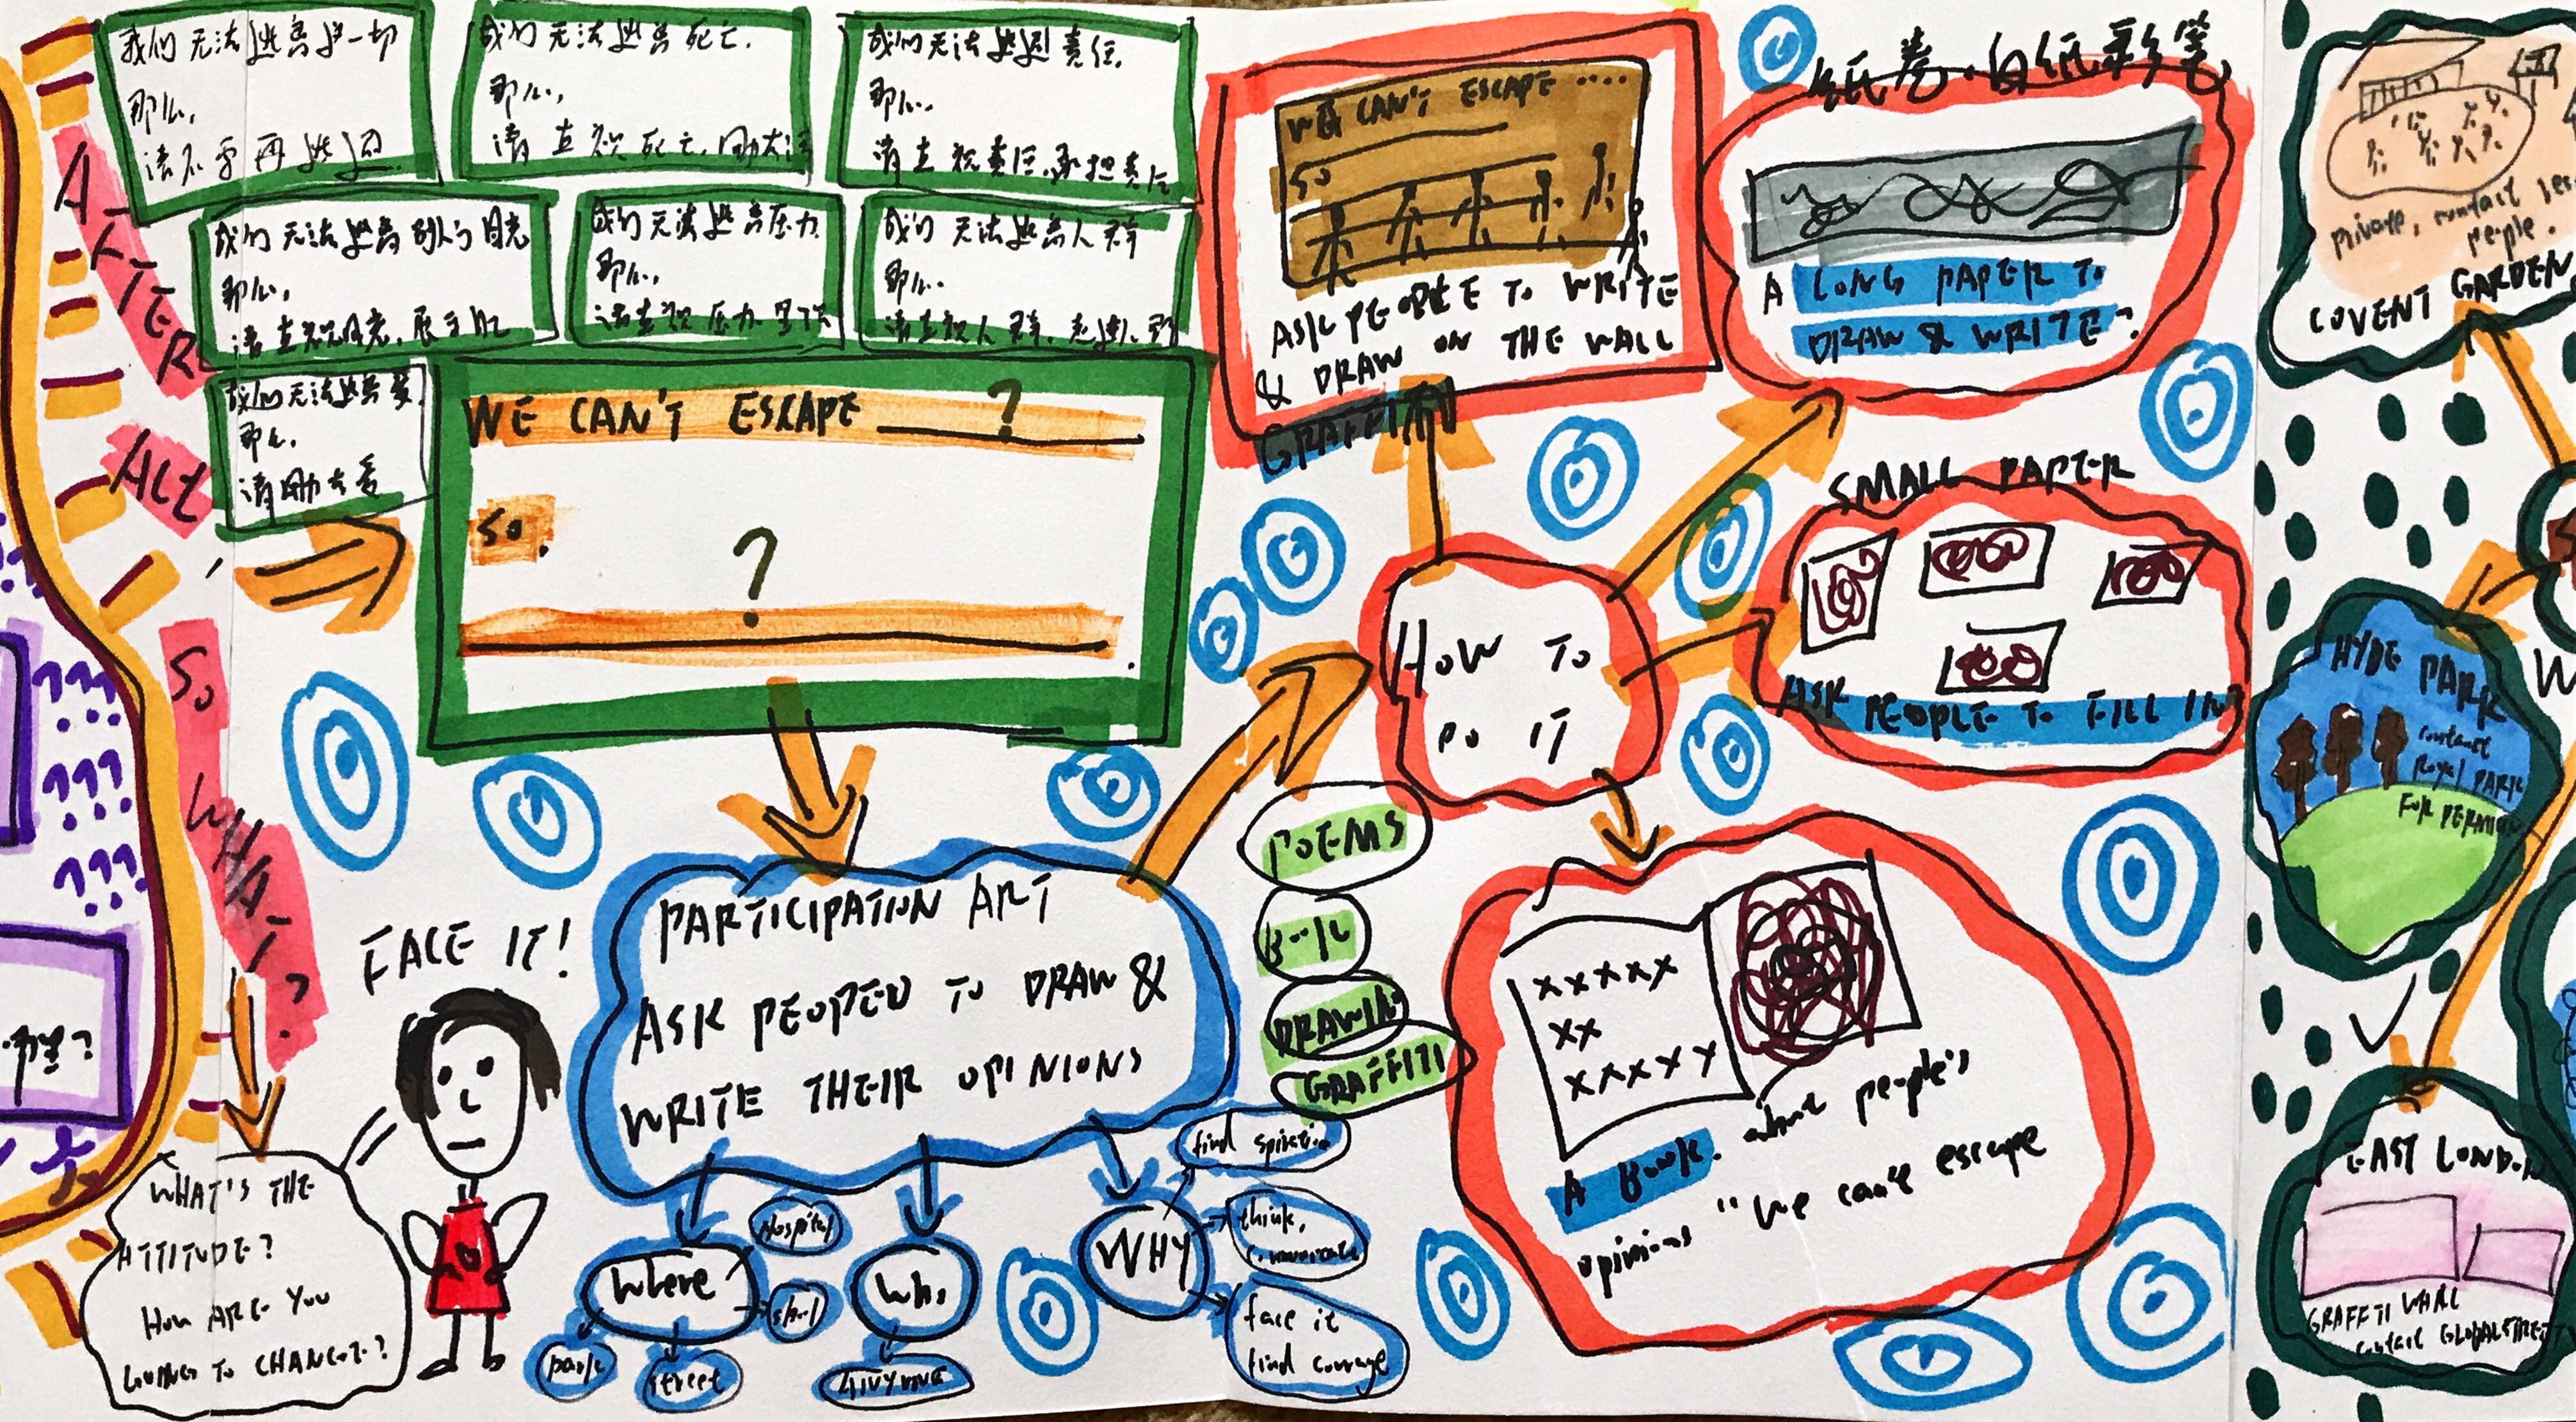 我们无法逃离这一切
那么,
请不要再逃避
我们无法逃离死亡.
那么,
请直视死亡,
我们无法逃避责任.
那么.
请直视责任.承担责任
我们无法逃离别人的目光
那么,
请直视目光,
我们无法逃离压力.
那么,
请直视压力
我们无法逃离人群
那么.
请直视人群,
我们无法逃离
那么.
请
AFTER
ALL
,
SO
WHAT?
WE CAN'T ESCAPE ?
SO.
?
.
WHAT'S THE
ATTITUDE?
HOW ARE YOU
GOING TO CHANGE?
FACE IT!
PARTICIPATION ART
ASK PEOPEO TO DRAW &
WRITE THEIR OPINIONS
Where
Hospital
park
street
Who
WHY
think,
face it
find courage
HOW TO
DO IT
WE CAN'T ESCAPE ....
SO
ASK PEOPLE TO WRITE
& DRAW ON THE WALL
GRAFFITI
纸卷.白纸彩笔
A LONG PAPER TO
DRAW & WRITE?
SMALL PAPER
ASK PEOPLE TO FILL IN?
POEMS
DRAWING
GRAFFITI
xxxxx
xx
xxxxx
A Book. about people's
opinions "We can't escape
private, contact
people.
COVENT GARDEN
HYDE PARK
contact
Royal PARK
FOR
EAST LONDON
GRAFFTI WALL
contact GLOBALSTREET
??? 
???
???